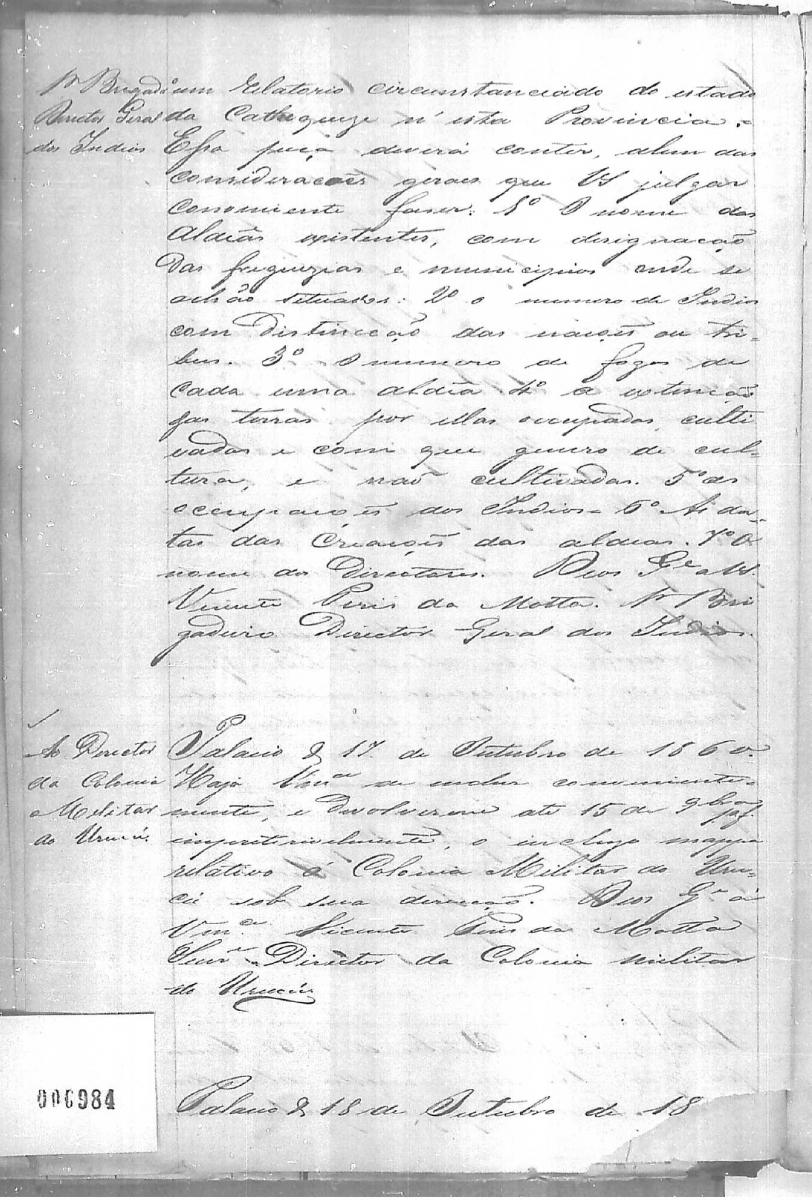 Sr Brigadro
Director Geral
dos Indios
um relatorio circunstanciado do estado
da Cathequeze n'esta Provincia.
Essa peça deverá conter, alem das
consideracoẽs geraes que VS julgar
conveniente faser: 1º O nome das
Aldeãs existentes, com designação
das freguezias e municipios onde se
achão situados: 2º o numero de Indios
com distincção das naçoẽs ou tri-
bus. 3º O numero de fogos de
cada uma aldéa 4º a extenção
das terras por ellas occupadas, culti
vadas e com que genero de cul-
tura, e não cultivadas. 5º as
occupacoẽs dos Indios - 6º As da-
tas das Criaçoẽs das aldeas. 7º O
nome dos Directores. Deos Gᵉ a VS.
Vicente Pires da Motta. Sr Bri
gadeiro Director Geral dos Indios.
Ao Director
da Colonia
Militar
do Urucú.
Palacio & 17 de Outubro de 1860.
Haja Vmᶜᵉ de encher conveniente-
mente, e devolverme até 15 de 9bro
impreterivelmente, o incluzo mappa
relativo á Colonia Militar do Uru-
cú sob sua direcção. Deos Gᵉ á
Vmᶜᵉ Vicente Pires da Motta
Senrᵉ Director da Colonia militar
do Urucú
Palacio & 18 de Outubro de 18
006984